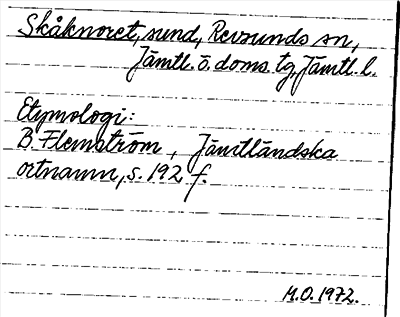 Skåknoret, sund, Revsunds sn,
Jämtl. ö. doms. tg, Jämtl. l.
Etymologi:
B. Flemström, Jämtländska
ortnamn, s. 192 f.
M.O. 1972.